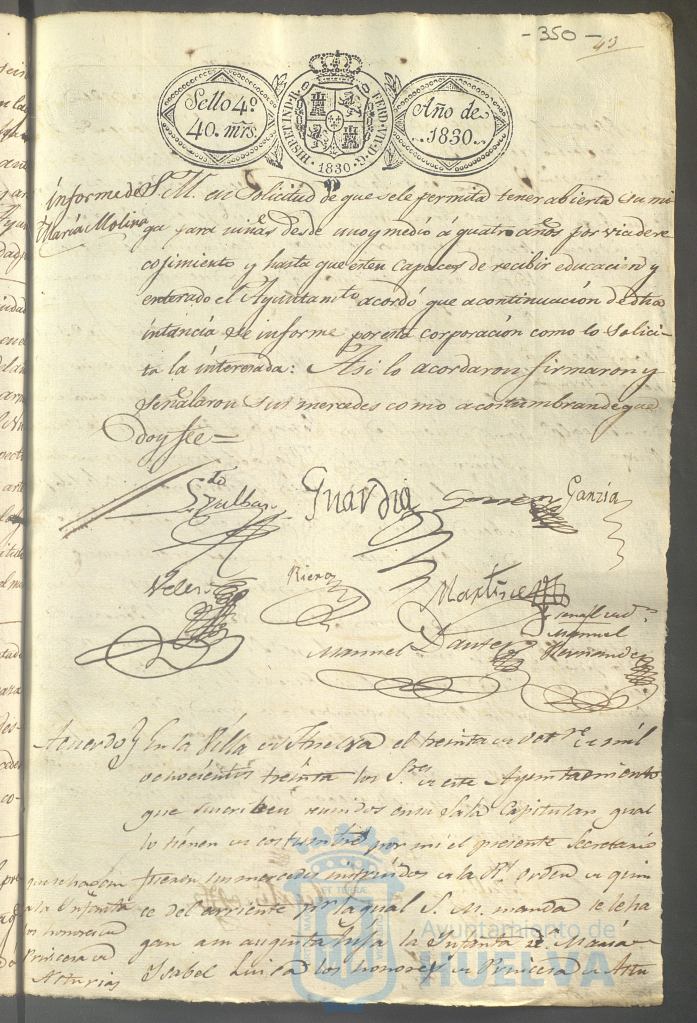 -350-
43
Sello 4º
40. mrs.
HISP. ET IND. R. FERD. VII. D. G. 1830.
Año de
1830.
informe de
Maria Molina
S. M. en Solicitud de que se le permita tener abierta su mi
ga para niñas desde uno y medio á quatro años por via de re
cojimiento y hasta que esten capaces de recibir educacion y
enterado el Ayuntamto acordó que acontinuacion de dha
intancia se informe por esta corporacion como lo solici-
ta la interesada: Asi lo acordaron firmaron y
Señalaron sus mercedes como acostumbran de que
doy fee=
Guardia
Garzia
Velez
Riero
Martinez
Manuel
Manuel Dante
Hernandez
Acuerdo
En la Villa de Huelva el treinta de Octre de mil
ochocientos treinta los Sres de este Ayuntamiento
que suscriben reunidos en su Sala Capitular qual
lo tienen de costumbre por mi el presente Secretario
que se hagan
a la Infanta
los honores de
Princesa de
Asturias
fueron sus mercedes instruidos de la Rl orden de quin
ce del corriente pr la qual S. M. manda se le ha
gan a su augusta hija la Infanta Dª Maria
Isabel Luisa los honores de Princesa de Astu
Ayuntamiento de
HUELVA